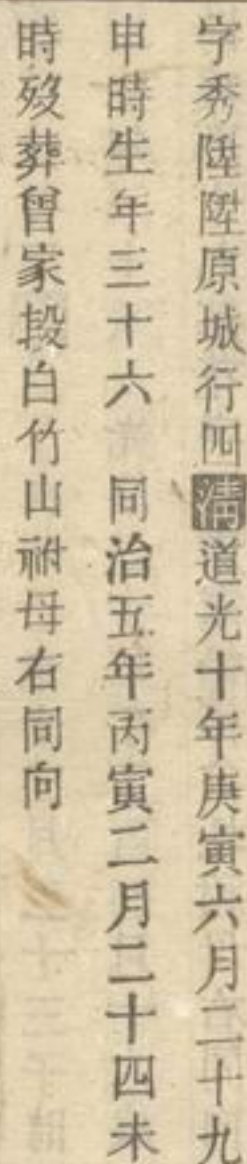 字秀陞陞原城行四清道光十年庚寅六月二十九
申時生年三十六 同治五年丙寅二月二十四未
時歿葬曾家段白竹山祔母右同向